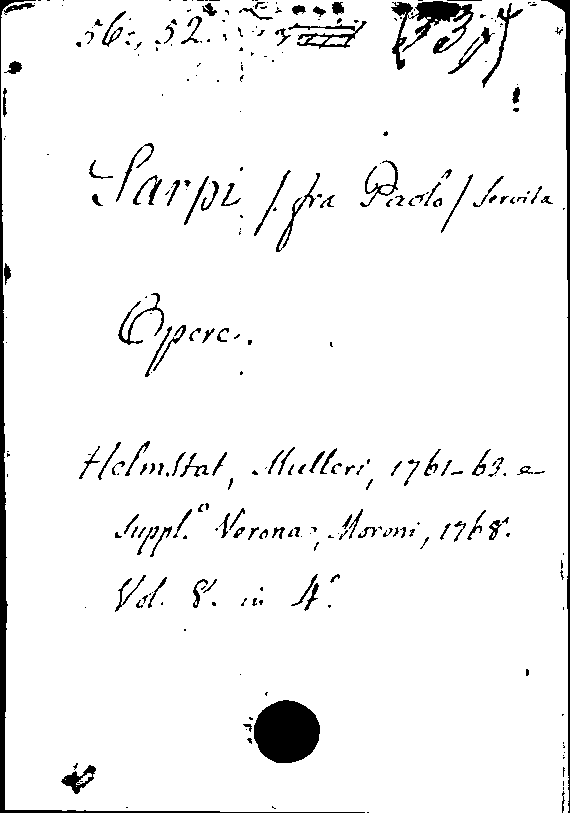 56., 52.
Sarpi /. fra Paolo / Servita
Opere.
Helmstat, Mulleri, 1761-63. e
suppl.º Verona, Moroni, 1768.
Vol. 8. in 4º.